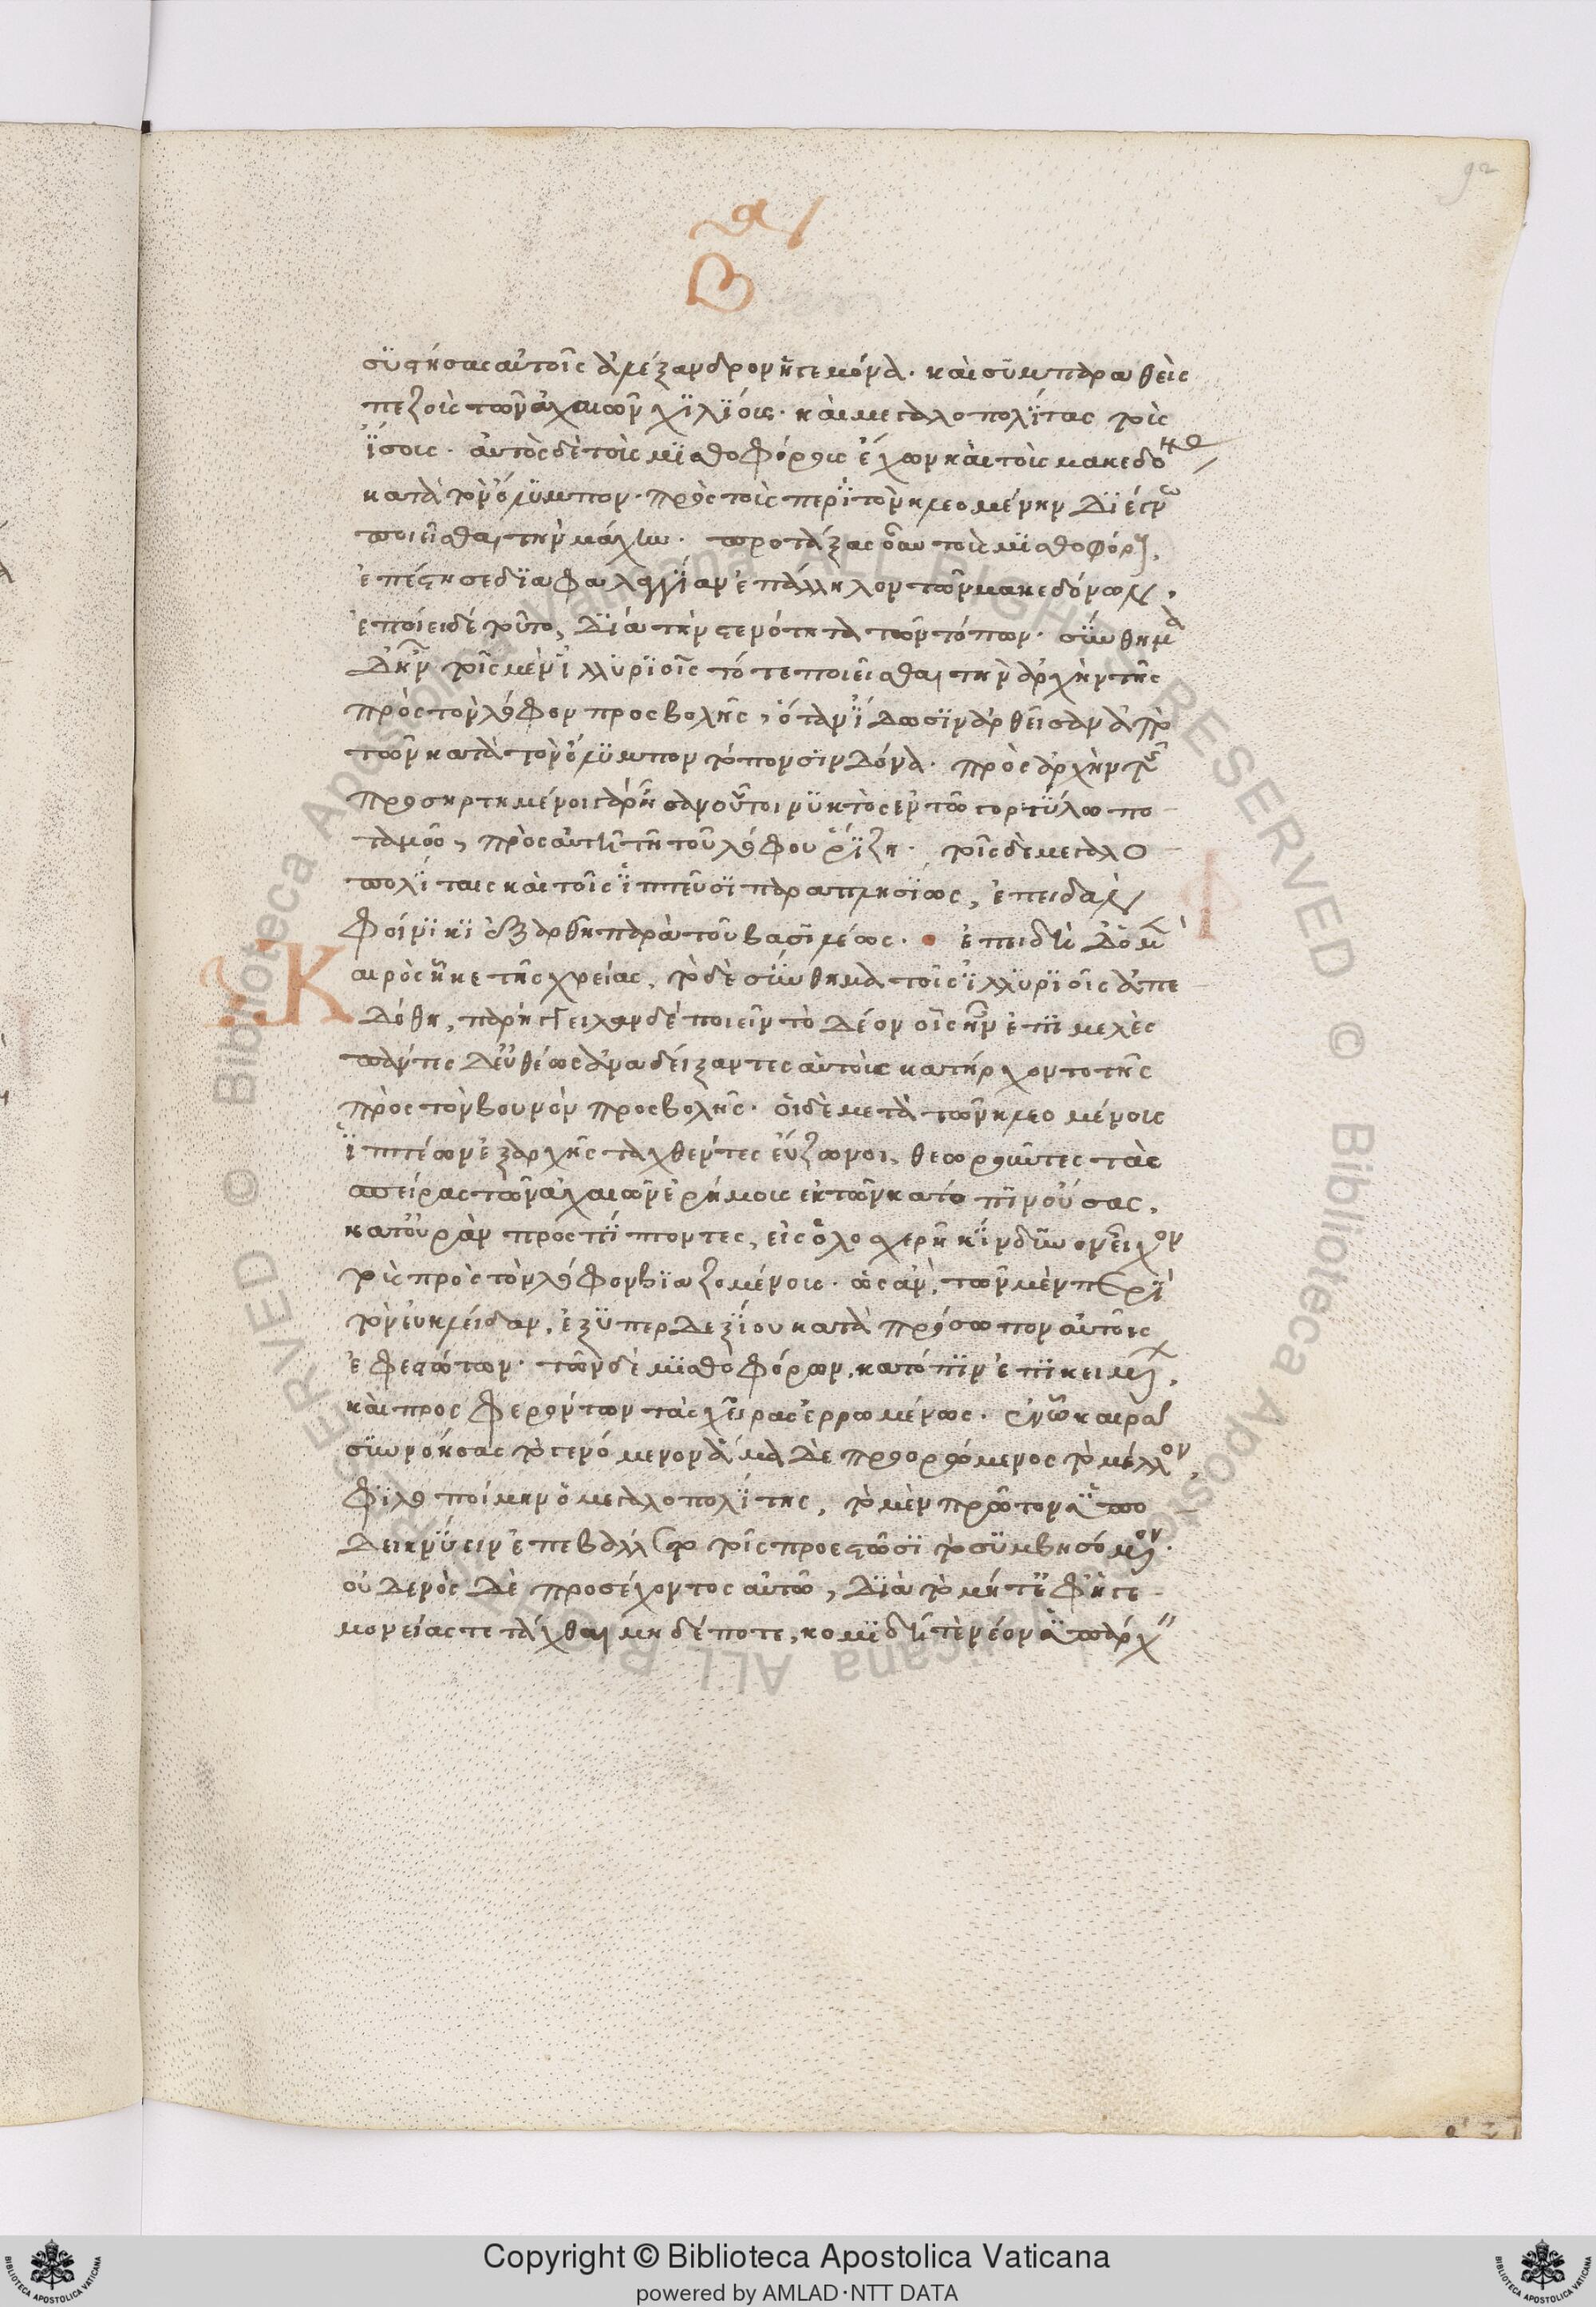 92
Β
συστήσας αὐτοῖς ἀλέξανδρον ἡγεμόνα. καὶ συμπαραθεὶς
πεζοὺς τῶν ἀχαιῶν χιλίους. καὶ μεγαλοπολίτας τοὺς
ἴσους. αὐτὸς δὲ τοὺς μισθοφόρους ἔχων καὶ τοὺς μακεδόνας
κατὰ τὸν ὄλυμπον. πρὸς τοὺς περὶ τὸν κλεομένην διέγνω
ποιεῖσθαι τὴν μάχην. προτάξας οὖν τοὺς μισθοφόρους,
ἐπέστησε διφαλαγγίαν ἐπάλληλον τῶν μακεδόνων,
ἐποίει δὲ τοῦτο, διὰ τὴν στενότητα τῶν τόπων. σύνθημα
δ' ἦν τοῖς μὲν ἰλλυριοῖς τότε ποιεῖσθαι τὴν ἀρχὴν τῆς
πρὸς τὸν λόφον προσβολῆς, ὅταν ἴδωσιν ἀρθεῖσαν ἀπὸ
τῶν κατὰ τὸν ὄλυμπον τόπον σινδόνα. πρὸς ἀρχὴν
προσηρτημένοι γὰρ ἦσαν οὗτοι νυκτὸς ἐν τῷ γοργύλῳ πο
ταμῷ, πρὸς αὐτῇ τῇ τοῦ λόφου ῥίζῃ. τοῖς δὲ μεγαλο
πολίταις καὶ τοῖς ἱππεῦσι παραπλησίως, ἐπειδὰν
φοινικὶς ἐξαρθῇ παρὰ τοῦ βασιλέως. ἐπειδὴ δ' ὁ μὲν
Καιρὸς ἧκε τῆς χρείας, τὸ δὲ σύνθημα τοῖς ἰλλυριοῖς ἀπε
δόθη, παρήγγειλαν δὲ ποιεῖν τὸ δέον οἷς ἦν ἐπιμελὲς
πάντες δ' εὐθέως ἀναδείξαντες αὑτοὺς κατήρχοντο τῆς
πρὸς τὸν βουνὸν προσβολῆς. οἱ δὲ μετὰ τῶν κλεομένους
ἱππέων ἐξ ἀρχῆς ταχθέντες εὔζωνοι, θεωροῦντες τὰς
σπείρας τῶν ἀχαιῶν ἐρήμους ἐκ τῶν κατόπιν οὔσας,
κατ' οὐρὰν προσπίπτοντες, εἰς ὁλοσχερῆ κίνδυνον εἶχον
τοὺς πρὸς τὸν λόφον βιαζομένους. ὡς ἂν, τῶν μὲν περὶ
τὸν εὐκλείδαν, ἐξ ὑπερδεξίου κατὰ πρόσωπον αὐτοῖς
ἐφεστώτων. τῶν δὲ μισθοφόρων, κατόπιν ἐπικειμένων,
καὶ προσφερόντων τὰς χεῖρας ἐρρωμένως. ἐν ᾧ καιρῷ
συννοήσας τὸ γενόμενον ἅμα δὲ προορώμενος τὸ μέλλον,
φιλοποίμην ὁ μεγαλοπολίτης, τὸ μὲν πρῶτον ὑπο
δεικνύειν ἐπεβάλλετο τοῖς προεστῶσι τὸ συμβησόμενον.
οὐδενὸς δὲ προσέχοντος αὐτῷ, διὰ τὸ μήτ' ἐφ' ἡγε
μονείας τετάχθαι μηδέποτε, κομιδῇ τε νέον ὑπάρχειν